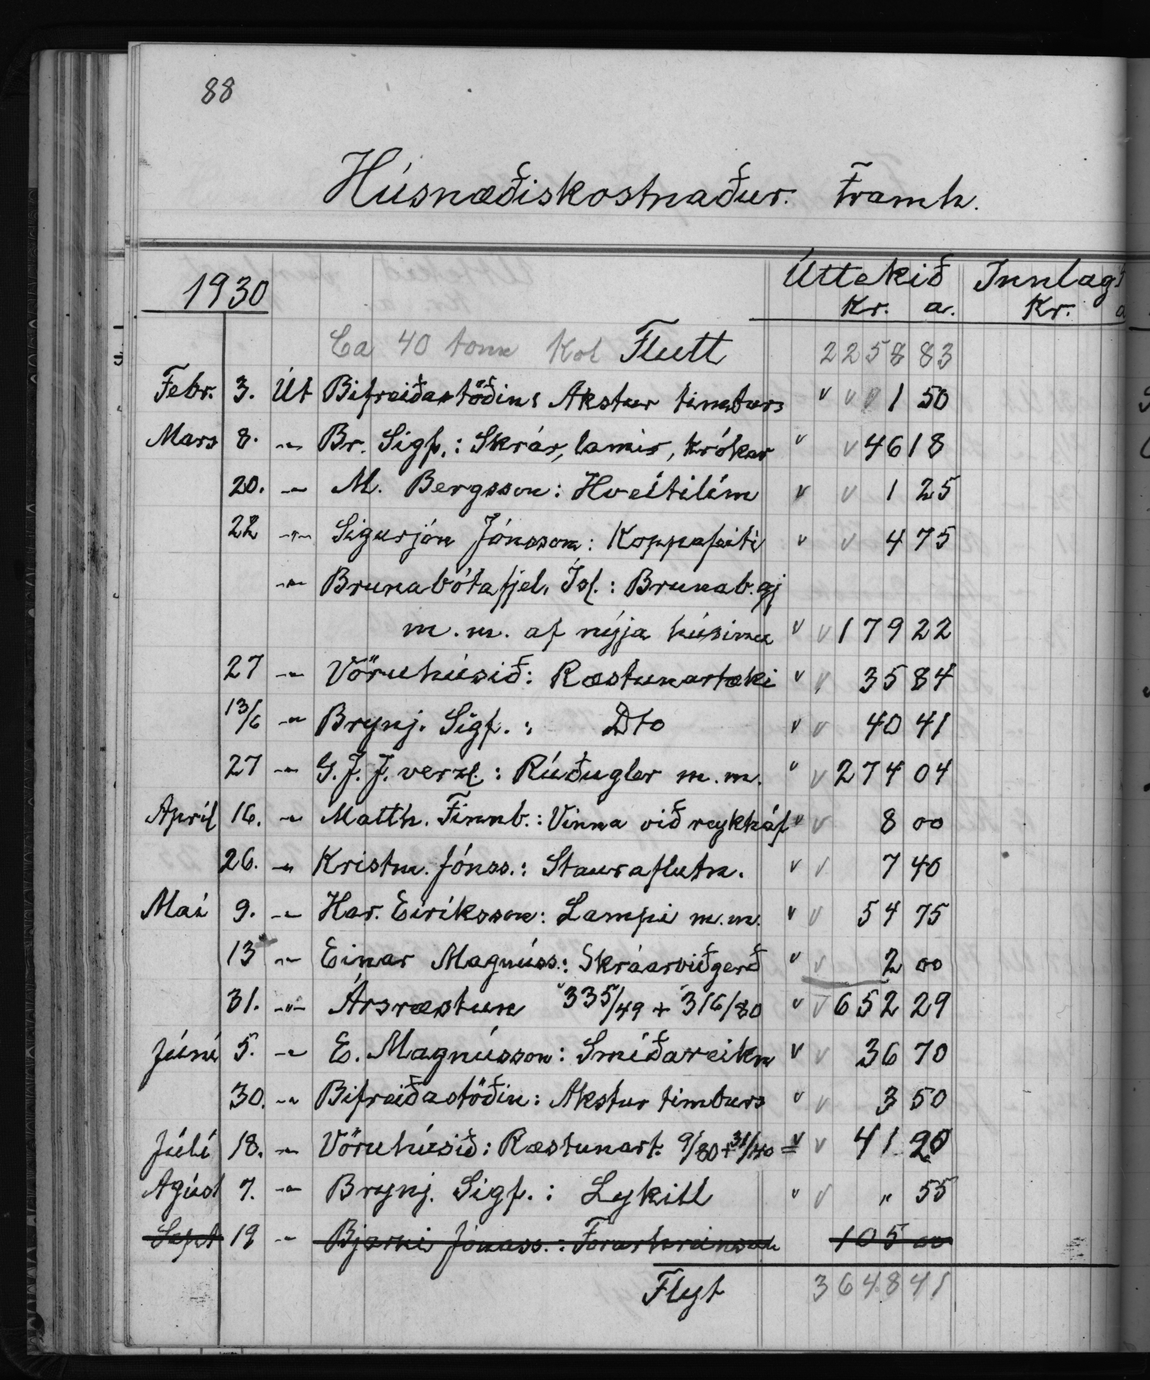 88
Húsnæðiskostnaður. Framh.
1930 Úttekið Innlagt
Kr. a. Kr. a
Ca 40 tonn Kol Flutt 2258 83
Febr. 3. Út Bifreiðastöðin: Akstur timburs " 1 50
Mars 8. -"- Br. Sigf.: Skrár, lamir, krókar " 46 18
20. -"- M. Bergsson: Hveitilím " 1 25
22 -"- Sigurjón Jónsson: Koppafeiti " 4 75
-"- Brunabótafjel. Ísl.: Brunab.gj
m.m. af nýja húsinu " 179 22
27 -"- Vöruhúsið: Ræstunartæki " 35 84
13/6 -"- Brynj. Sigf.: Dto " 40 41
27 -"- G. J. J. verzl.: Rúðugler m.m. " 274 04
Apríl 16. -"- Matth. Finnb.: Vinna við reykháf " 8 00
26. -"- Kristm. Jónss.: Stauraflutn. " 7 40
Maí 9. -"- Har. Eiríksson: Lampi m.m. " 54 75
13 -"- Einar Magnúss.: Skráarviðgerð " 2 00
31. -"- Ársræstun "335/49 + "316/80 " 652 29
Júní 5. -"- E. Magnússon: Smíðareikn " 36 70
30. -"- Bifreiðastöðin: Akstur timburs " 3 50
Júlí 18. -"- Vöruhúsið: Ræstunart: 9/80 + 31/40 = " 41 20
Agúst 7. -"- Brynj. Sigf.: Lykill " " 55
Sept 19 -"- Bjarni Jónass.: Forarhreinsun 105 00
Flyt 3648 41